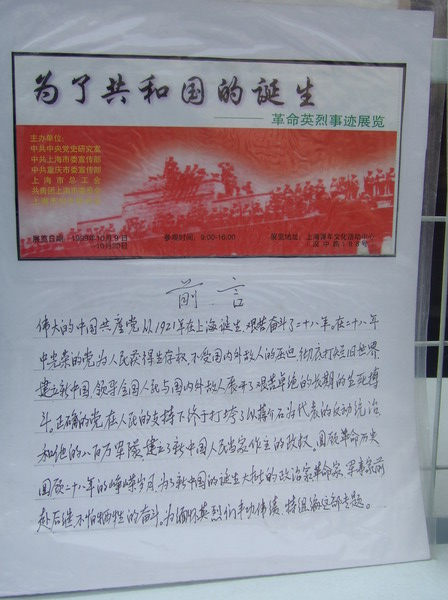 为了共和国的诞生
——革命英烈事迹展览
主办单位:
中共中央党史研究室
中共上海市委宣传部
中共重庆市委宣传部
上海市总工会
共青团上海市委员会
展览日期:
参观时间: 9:00-16:00
展览地址: 上海青年文化活动中心
前言
伟大的中国共产党从1921年在上海诞生艰苦奋斗了二十八年。在二十八年
中光荣的党为人民获得生存权,不受国内外敌人的压迫,彻底打碎旧世界
建立新中国,领导全国人民与国内外敌人展开了艰苦卓绝的长期的生死搏
斗。正确的党在人民的支持下终于打垮了以蒋介石为代表的反动统治,
和他的八百万军队,建立了新中国人民当家作主的政权。回顾革命历史
回顾二十八年的峥嵘岁月,为了新中国的诞生大批的政治家革命家,军事家前
赴后继不怕牺牲的奋斗。为缅怀英烈们丰功伟绩,特组编这部专题。